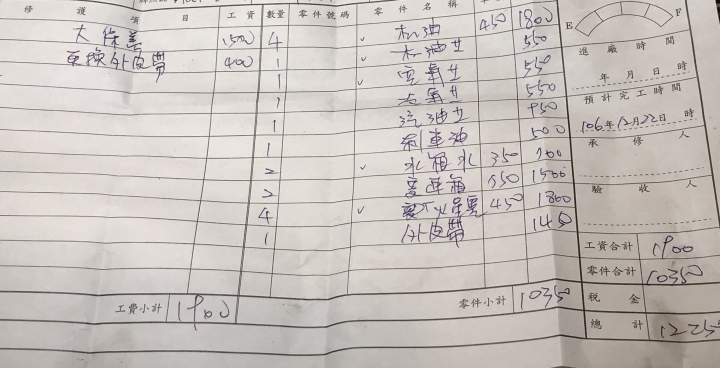 修 護 項 目 工 資 數量 零 件 號 碼 零 件 名 稱
大保養 1500 4 机油 450 1800
更換外皮帶 400 1 机油 550
1 空氣 550
1 550
1 汽油 950
1 剎車油 500
2 水箱水 350 700
2 變速箱 750 1500
4 火星塞 450 1800
1 外皮帶 1450
工費小計 1900 零件小計 10350
E F
進 廠 時 間
年 月 日 時
預計完工時間
106年12月22日 時
承 修 人
驗 收 人
工資合計 1900
零件合計 10350
稅 金
總 計 12250